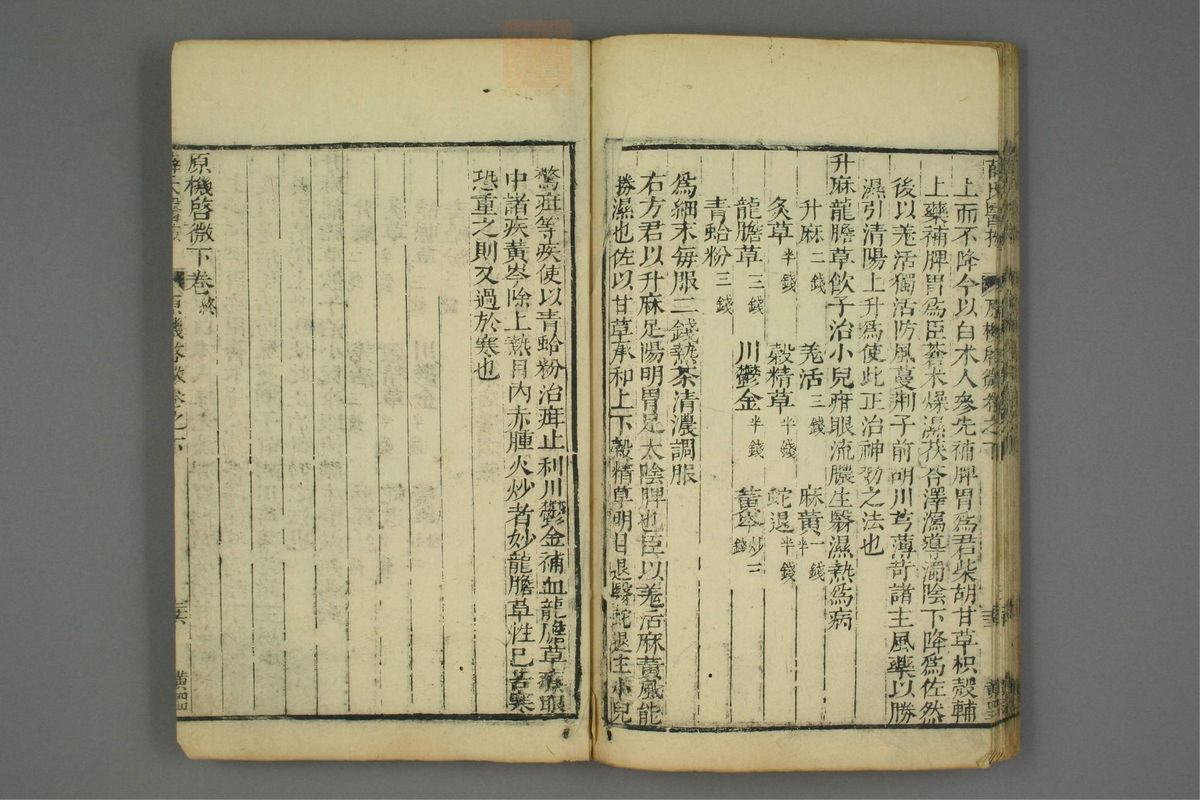 上而不降今以白术人參先補脾胃爲君柴胡甘草枳殼輔
上藥補脾胃爲臣蒼术燥濕茯苓澤瀉導濁陰下降爲佐然
後以羌活獨活防風蔓荆子前胡川芎薄荷諸主風藥以勝
濕引清陽上升爲使此正治神効之法也
升麻龍膽草飲子治小兒疳眼流膿生翳濕熱爲病
升麻二錢 羌活三錢 麻黃一錢半
炙草半錢 穀精草半錢 蛇退半錢
龍膽草三錢 川鬱金半錢 黃芩炒二錢
青蛤粉三錢
爲細末每服二錢熱茶清濃調服
右方君以升麻足陽明胃足太陰脾也臣以羌活麻黃風能
勝濕也佐以甘草承和上下穀精草明目退翳蛇退主小兒
驚疳等疾使以青蛤粉治疳止利川鬱金補血龍膽草療眼
中諸疾黃芩除上熱目內赤腫火炒者妙龍膽草性已苦寒
恐重之則又過於寒也
原機啓微下卷終
原機啓微卷之下